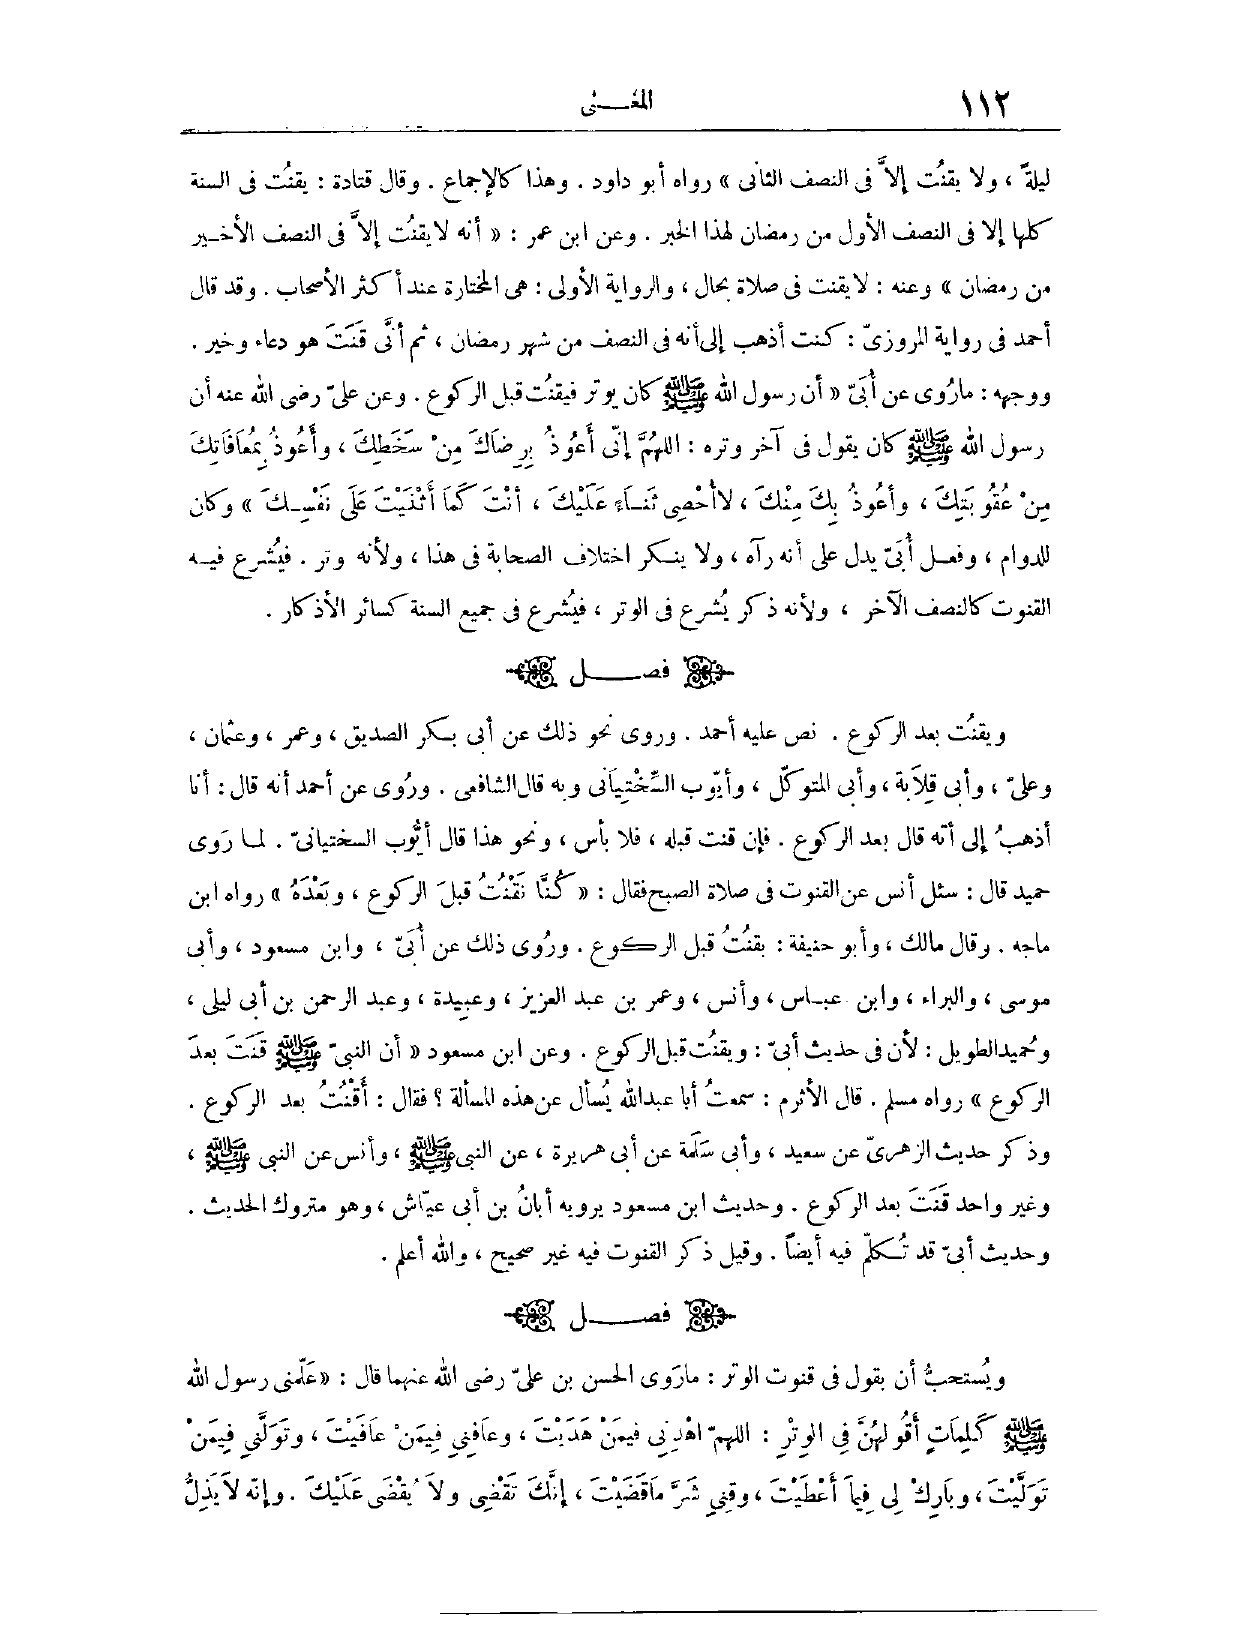 ١١٢
المغـــنى
ليلةً ، ولا يقنُت إلاَّ فى النصف الثانى » رواه أبو داود . وهذا كالإجماع . وقال قتادة : يقنُت فى السنة
كلها إلا فى النصف الأول من رمضان لهذا الخبر . وعن ابن عمر : « أنه لا يقنُت إلاَّ فى النصف الأخــير
من رمضان » وعنه : لا يقنت فى صلاة بحال ، والرواية الأولى : هى المختارة عند أكثر الأصحاب . وقد قال
أحمد فى رواية المروزىّ : كنت أذهب إلى أنه فى النصف من شهر رمضان ، ثم أنَّى قَنَتَ هو دعاء وخير .
ووجهه : مارُوى عن أُبَىّ « أن رسول الله ﷺ كان يوتر فيقنُت قبل الركوع . وعن علىّ رضى الله عنه أن
رسول الله ﷺ كان يقول فى آخر وتره : اللهُمَّ إنّى أَعُوذُ بِرِضَاكَ مِنْ سَخَطِكَ ، وأَعُوذُ بِمُعَافَاتِكَ
مِنْ عُقُوبَتِكَ ، وأعُوذُ بِكَ مِنْكَ ، لاأُحْصِى ثَنَــاءً عَلَيْكَ ، أنْتَ كَمَا أَثْنَيْتَ عَلَى نَفْسِــكَ » وكان
للدوام ، وفعــل أُبَىّ يدل على أنه رآه ، ولا ينــكر اختلاف الصحابة فى هذا ، ولأنه وتر . فيُشرع فيــه
القنوت كالنصف الآخر ، ولأنه ذكر يُشرع فى الوتر ، فيُشرع فى جميع السنة كسائر الأذكار .
فصــــل
ويقنُت بعد الركوع . نص عليه أحمد . وروى نحو ذلك عن أبى بــكر الصديق ، وعمر ، وعثمان ،
وعلىّ ، وأبى قِلاَبة ، وأبى المتوكّل ، وأيّوب السِّخْتِيَانى وبه قال الشافعى . ورُوى عن أحمد أنه قال : أنا
أذهبُ إلى أنّه قال بعد الركوع . فإن قنت قبله ، فلا بأس ، ونحو هذا قال أيُّوب السختيانىّ . لما رَوى
حميد قال : سئل أنس عن القنوت فى صلاة الصبح فقال : « كُنَّا نَقْنُتُ قبلَ الركوع ، وبَعْدَهُ » رواه ابن
ماجه . وقال مالك ، وأبو حنيفة : يقنُتُ قبل الركوع . ورُوى ذلك عن أُبَىّ ، وابن مسعود ، وأبى
موسى ، والبراء ، وابن عبــاس ، وأنس ، وعمر بن عبد العزيز ، وعبِيدة ، وعبد الرحمن بن أبى ليلى ،
وحُميد الطويل : لأن فى حديث أبىّ : ويقنُت قبل الركوع . وعن ابن مسعود « أن النبىّ ﷺ قَنَتَ بعدَ
الركوع » رواه مسلم . قال الأثرم : سمعتُ أبا عبدالله يُسأل عن هذه المسألة ؟ فقال : أَقْنُتُ بعد الركوع .
وذكر حديث الزهرىّ عن سعيد ، وأبى سَلَمة عن أبى هريرة ، عن النبى ﷺ ، وأنس عن النبى ﷺ ،
وغير واحد قَنَتَ بعد الركوع . وحديث ابن مسعود يرويه أبانُ بن أبى عيّاش ، وهو متروك الحديث .
وحديث أبىّ قد تُــكلّم فيه أيضاً . وقيل ذكر القنوت فيه غير صحيح ، والله أعلم .
فصــــل
ويُستحبُّ أن يقول فى قنوت الوتر : مارَوى الحسن بن علىّ رضى الله عنهما قال : « عَلّمنى رسول الله
ﷺ كَلِمَاتٍ أَقُولهُنَّ فِى الوِتْرِ : اللهمّ اهْدِنِى فيمَنْ هَدَيْتَ ، وعَافِنِي فِيمَنْ عافَيْتَ ، وتَوَلَّنِي فِيمَنْ
تَوَلَّيْتَ ، وبَارِكْ لِى فِيمَا أَعْطَيْتَ ، وقِنِي شَرَّ ماقَضَيْتَ ، إنَّكَ تَقْضِى ولاَ يُقْضَى عَلَيْكَ . وإنّه لاَ يَذِلُّ